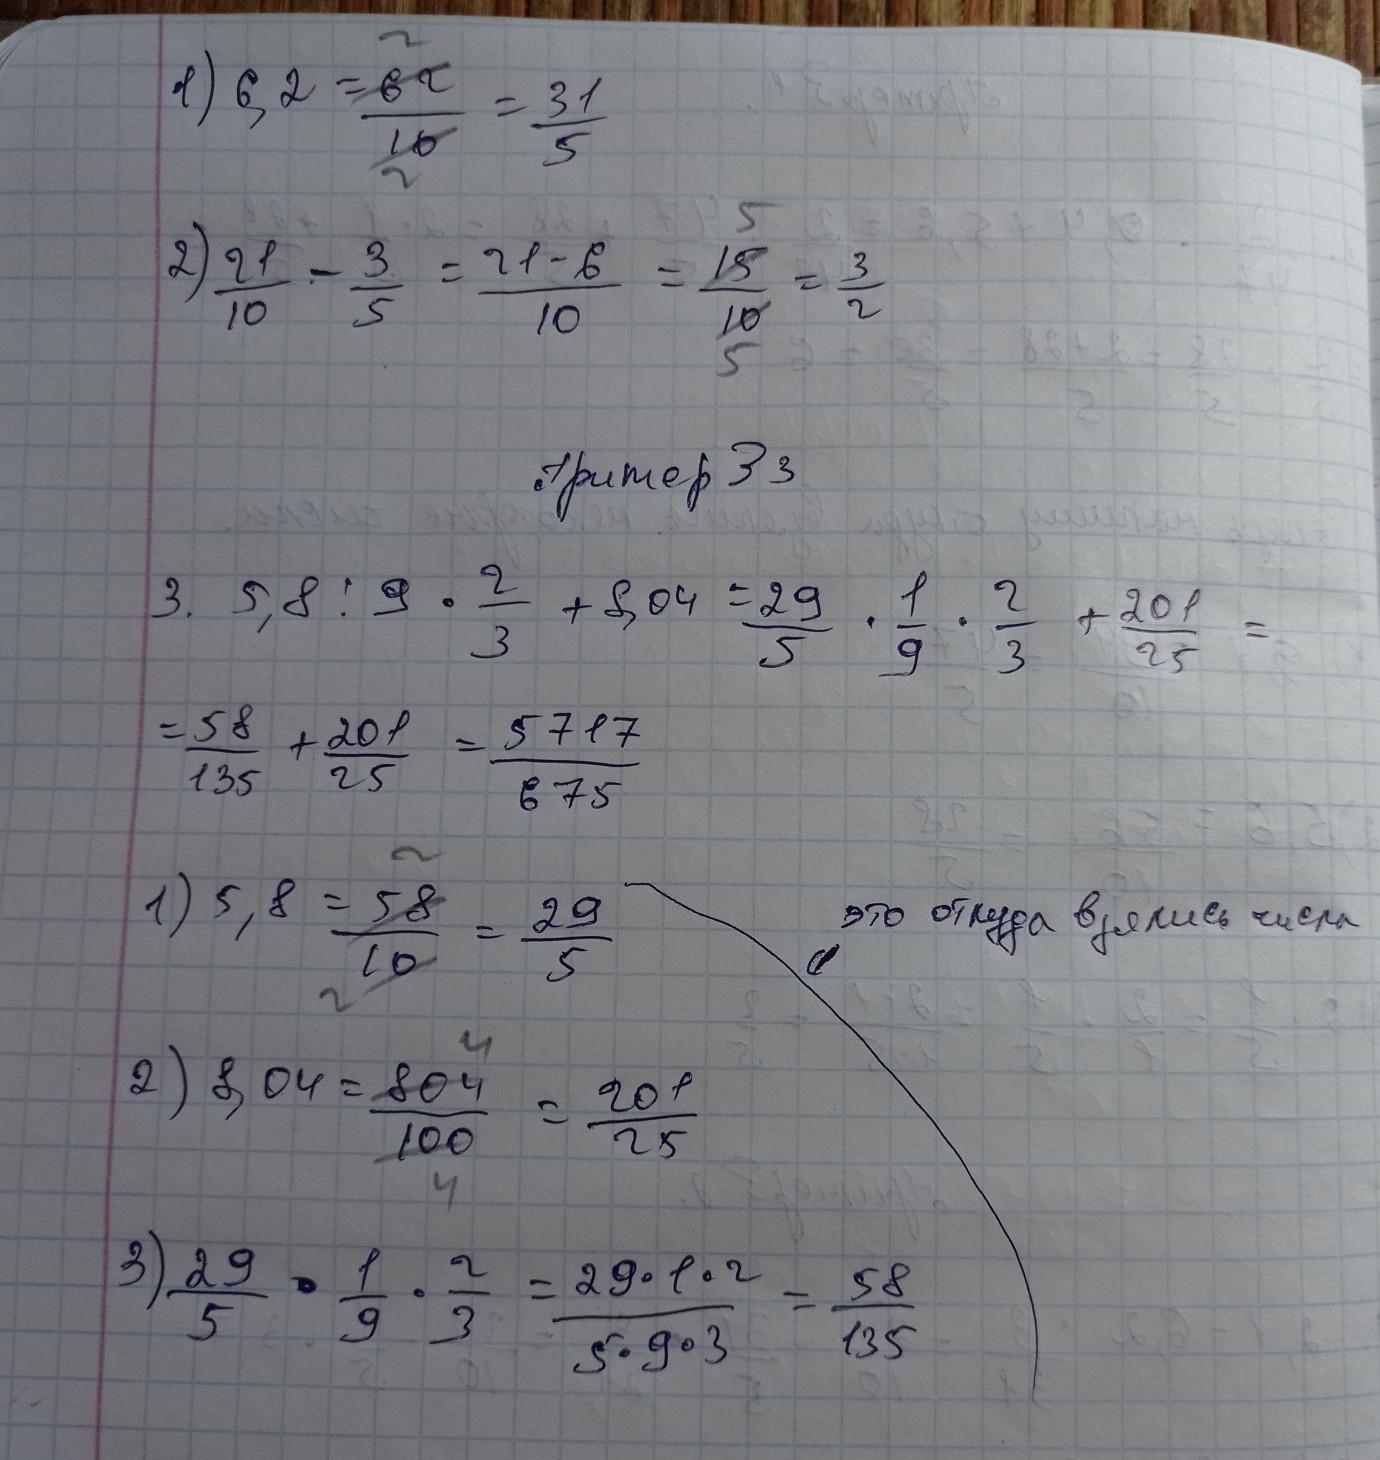 1) 6,2 = 62/10 = 31/5
2) 21/10 - 3/5 = 21-6/10 = 15/10 = 3/2
Пример З 3
3. 5,8 : 9 · 2/3 + 8,04 = 29/5 · 1/9 · 2/3 + 201/25 =
= 58/135 + 201/25 = 5717/675
1) 5,8 = 58/10 = 29/5
это откуда взялись числа
2) 8,04 = 804/100 = 201/25
3) 29/5 · 1/9 · 2/3 = 29·1·2/5·9·3 = 58/135